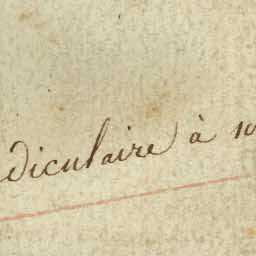 diculaire à